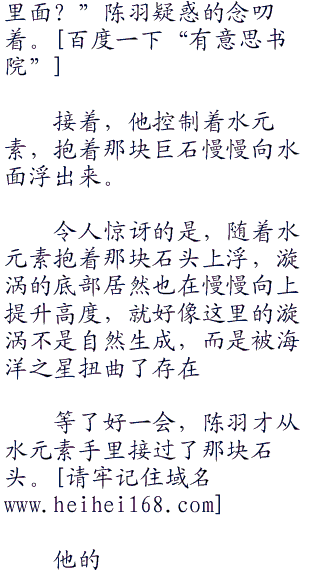 里面？”陈羽疑惑的念叨
着。[百度一下“有意思书
院”]
接着，他控制着水元
素，抱着那块巨石慢慢向水
面浮出来。
令人惊讶的是，随着水
元素抱着那块石头上浮，漩
涡的底部居然也在慢慢向上
提升高度，就好像这里的漩
涡不是自然生成，而是被海
洋之星扭曲了存在
等了好一会，陈羽才从
水元素手里接过了那块石
头。[请牢记住域名
www.heihei168.com]
他的